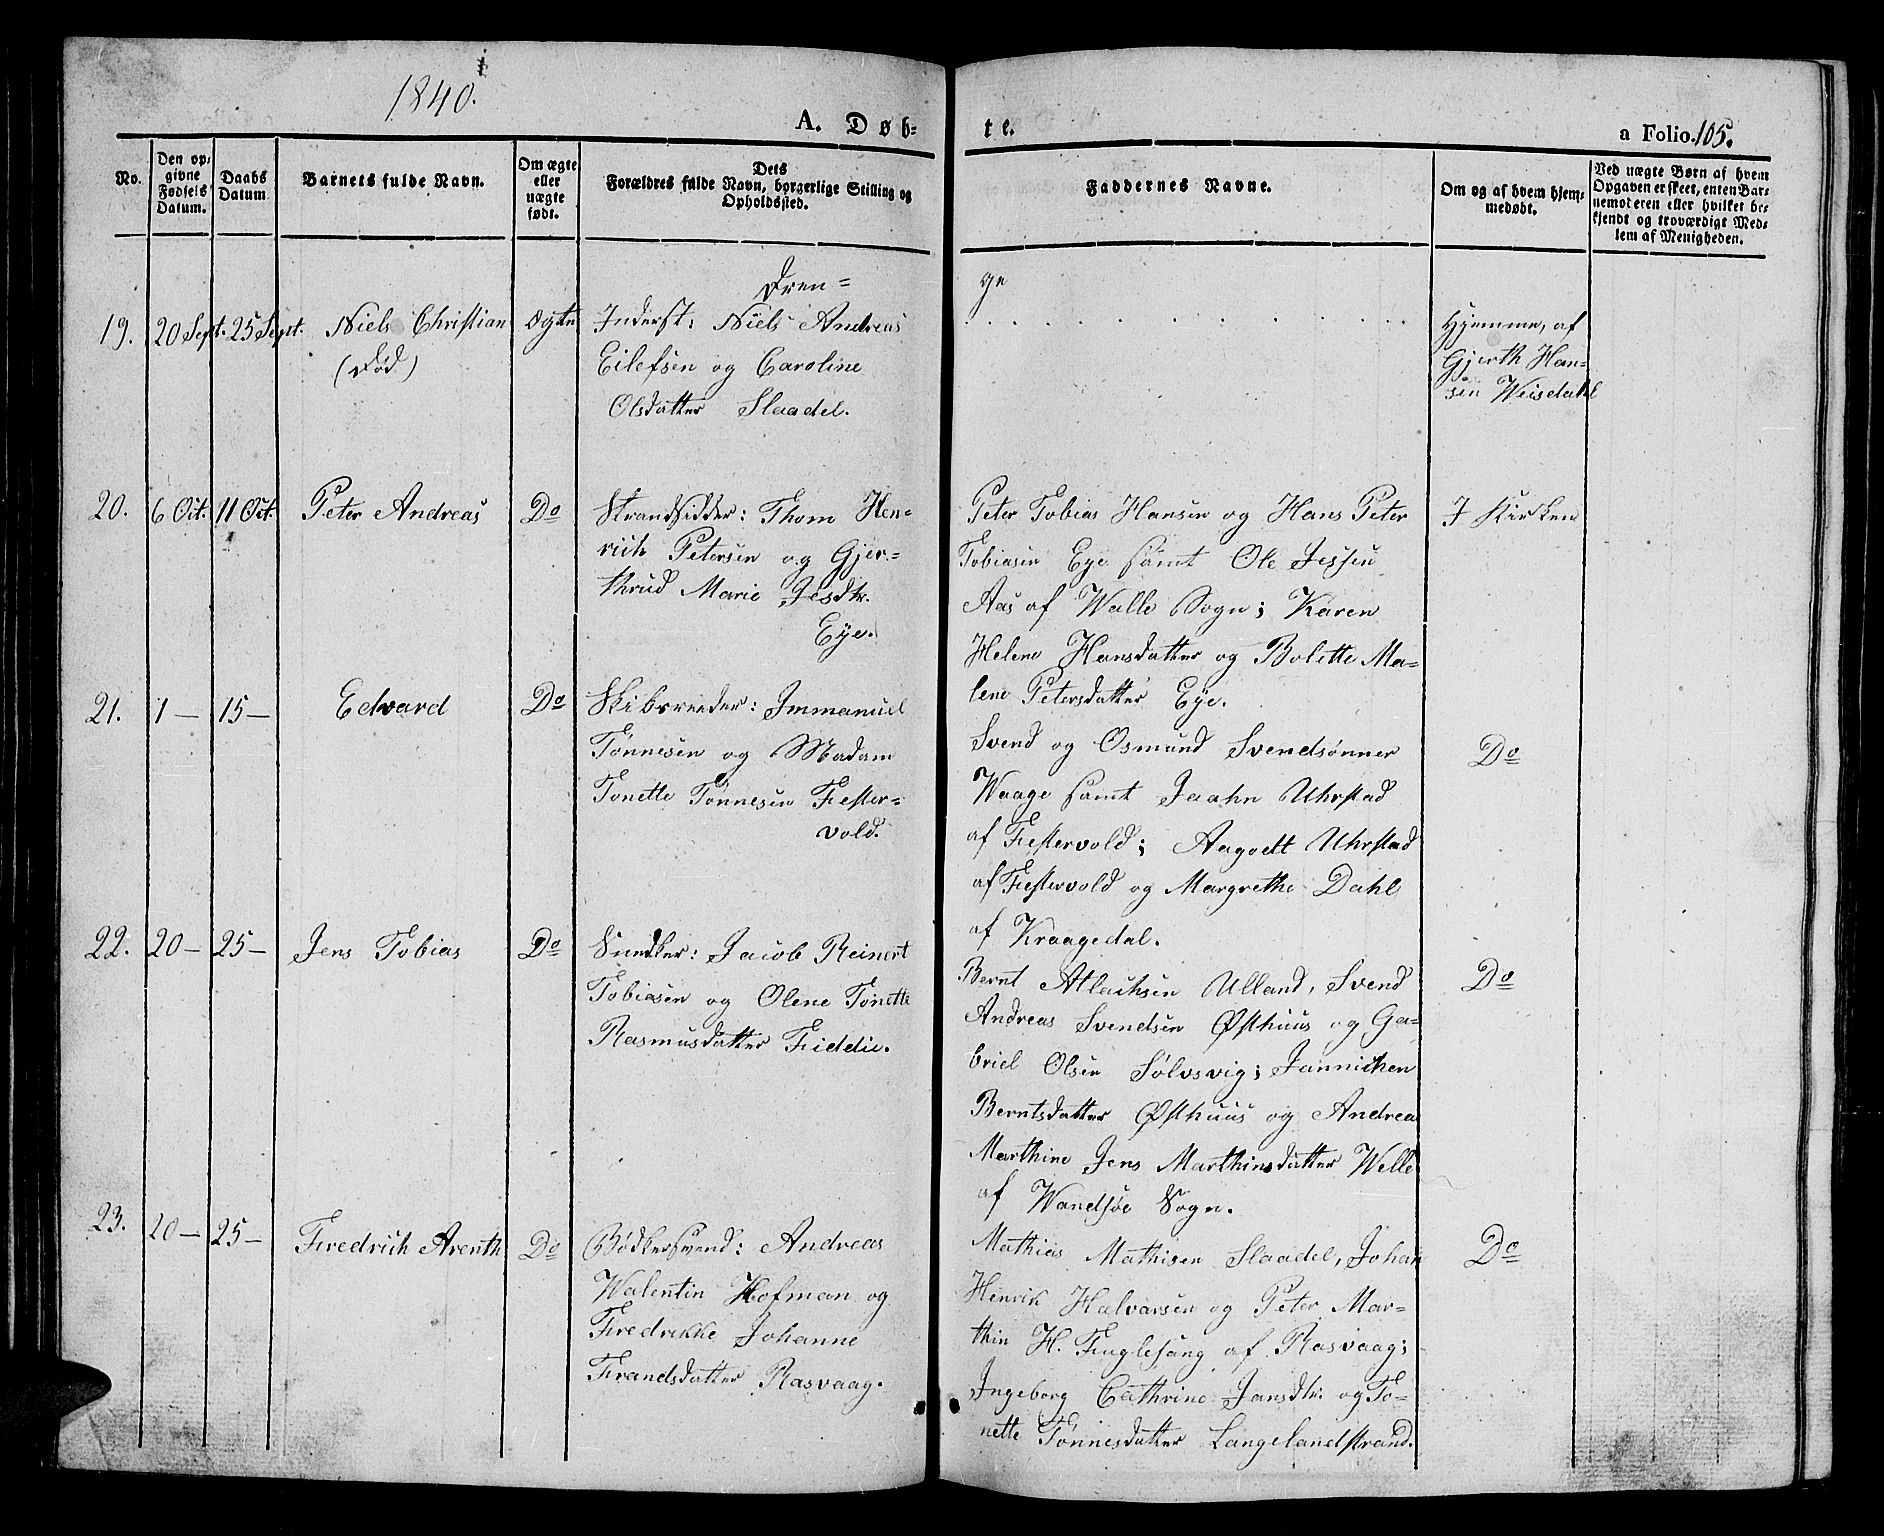 1840.
A. Døb-
te.
a Folio. 105.
No.
Den op-
givne
Fødsels
Datum.
Daabs
Datum
Barnets fulde Navn.
Om ægte
eller
uægte
født.
Dets
Forældres fulde Navn, borgerlige Stilling og
Opholdssted.
Faddernes Navne.
Om og af hvem hjem-
medøbt.
Ved uægte Børn af hvem
Opgaven er skeet, enten Bar-
nemoteren eller hvilket be-
kjendt og troværdigt Med-
lem af Menigheden.
Dren=
ge
19. 20 Sept. 25 Sept. Niels Christian
(Død)
Ægte
Inderst: Niels Andreas
Eilefsen og Caroline
Olsdatter Slaadel.
Hjemme, af
Gjerth Han-
sen Weisdahl
20. 6 Oct. 11 Oct. Peter Andreas Do
Strandsidder: Thom Hen-
rich Petersen og Gjer-
thrud Marie Jesdtr.
Eye.
Peter Tobias Hansen og Hans Peter
Tobiasen Eye samt Ole Jessen
Aas af Walle Sogn; Karen
Helene Hansdatter og Bolette Ma-
lene Petersdatter Eye.
I Kirken
21. 1 — 15 — Edvard Do
Skibsreeder: Immanuel
Tønnesen og Madam
Tonette Tønnesen Fester-
vold.
Svend og Osmund Svendsønner
Waage samt Jaahn Uhrstad
af Festervold; Aagodt Uhrstad
af Festervold og Margrethe Dahl
af Kraagedal.
Do
22. 20 — 25 — Jens Tobias Do
Snedker: Jacob Reinert
Tobiasen og Olene Tonette
Rasmusdatter Fiddie.
Bernt Atlachsen Ulland, Svend
Andreas Svendsen Østhuus og Ga-
briel Olsen Sølvsvig; Jannichen
Berntsdatter Østhuus og Andrea
Marthine Jens Marthinsdatter Welle
af Wandsøe Sogn.
Do
23. 20 — 25 — Fredrich Arenth Do
Bødkersvend: Andreas
Walentin Hofman og
Fredrikke Johanne
Frandsdatter Rasvaag.
Mathias Mathisen Slaadel, Johan
Henrik Halvarsen og Peter Mar-
thin H. Fuglesang af Rasvaag;
Ingeborg Cathrine Jansdtr. og To-
nette Tønnesdatter Langelandstrand.
Do